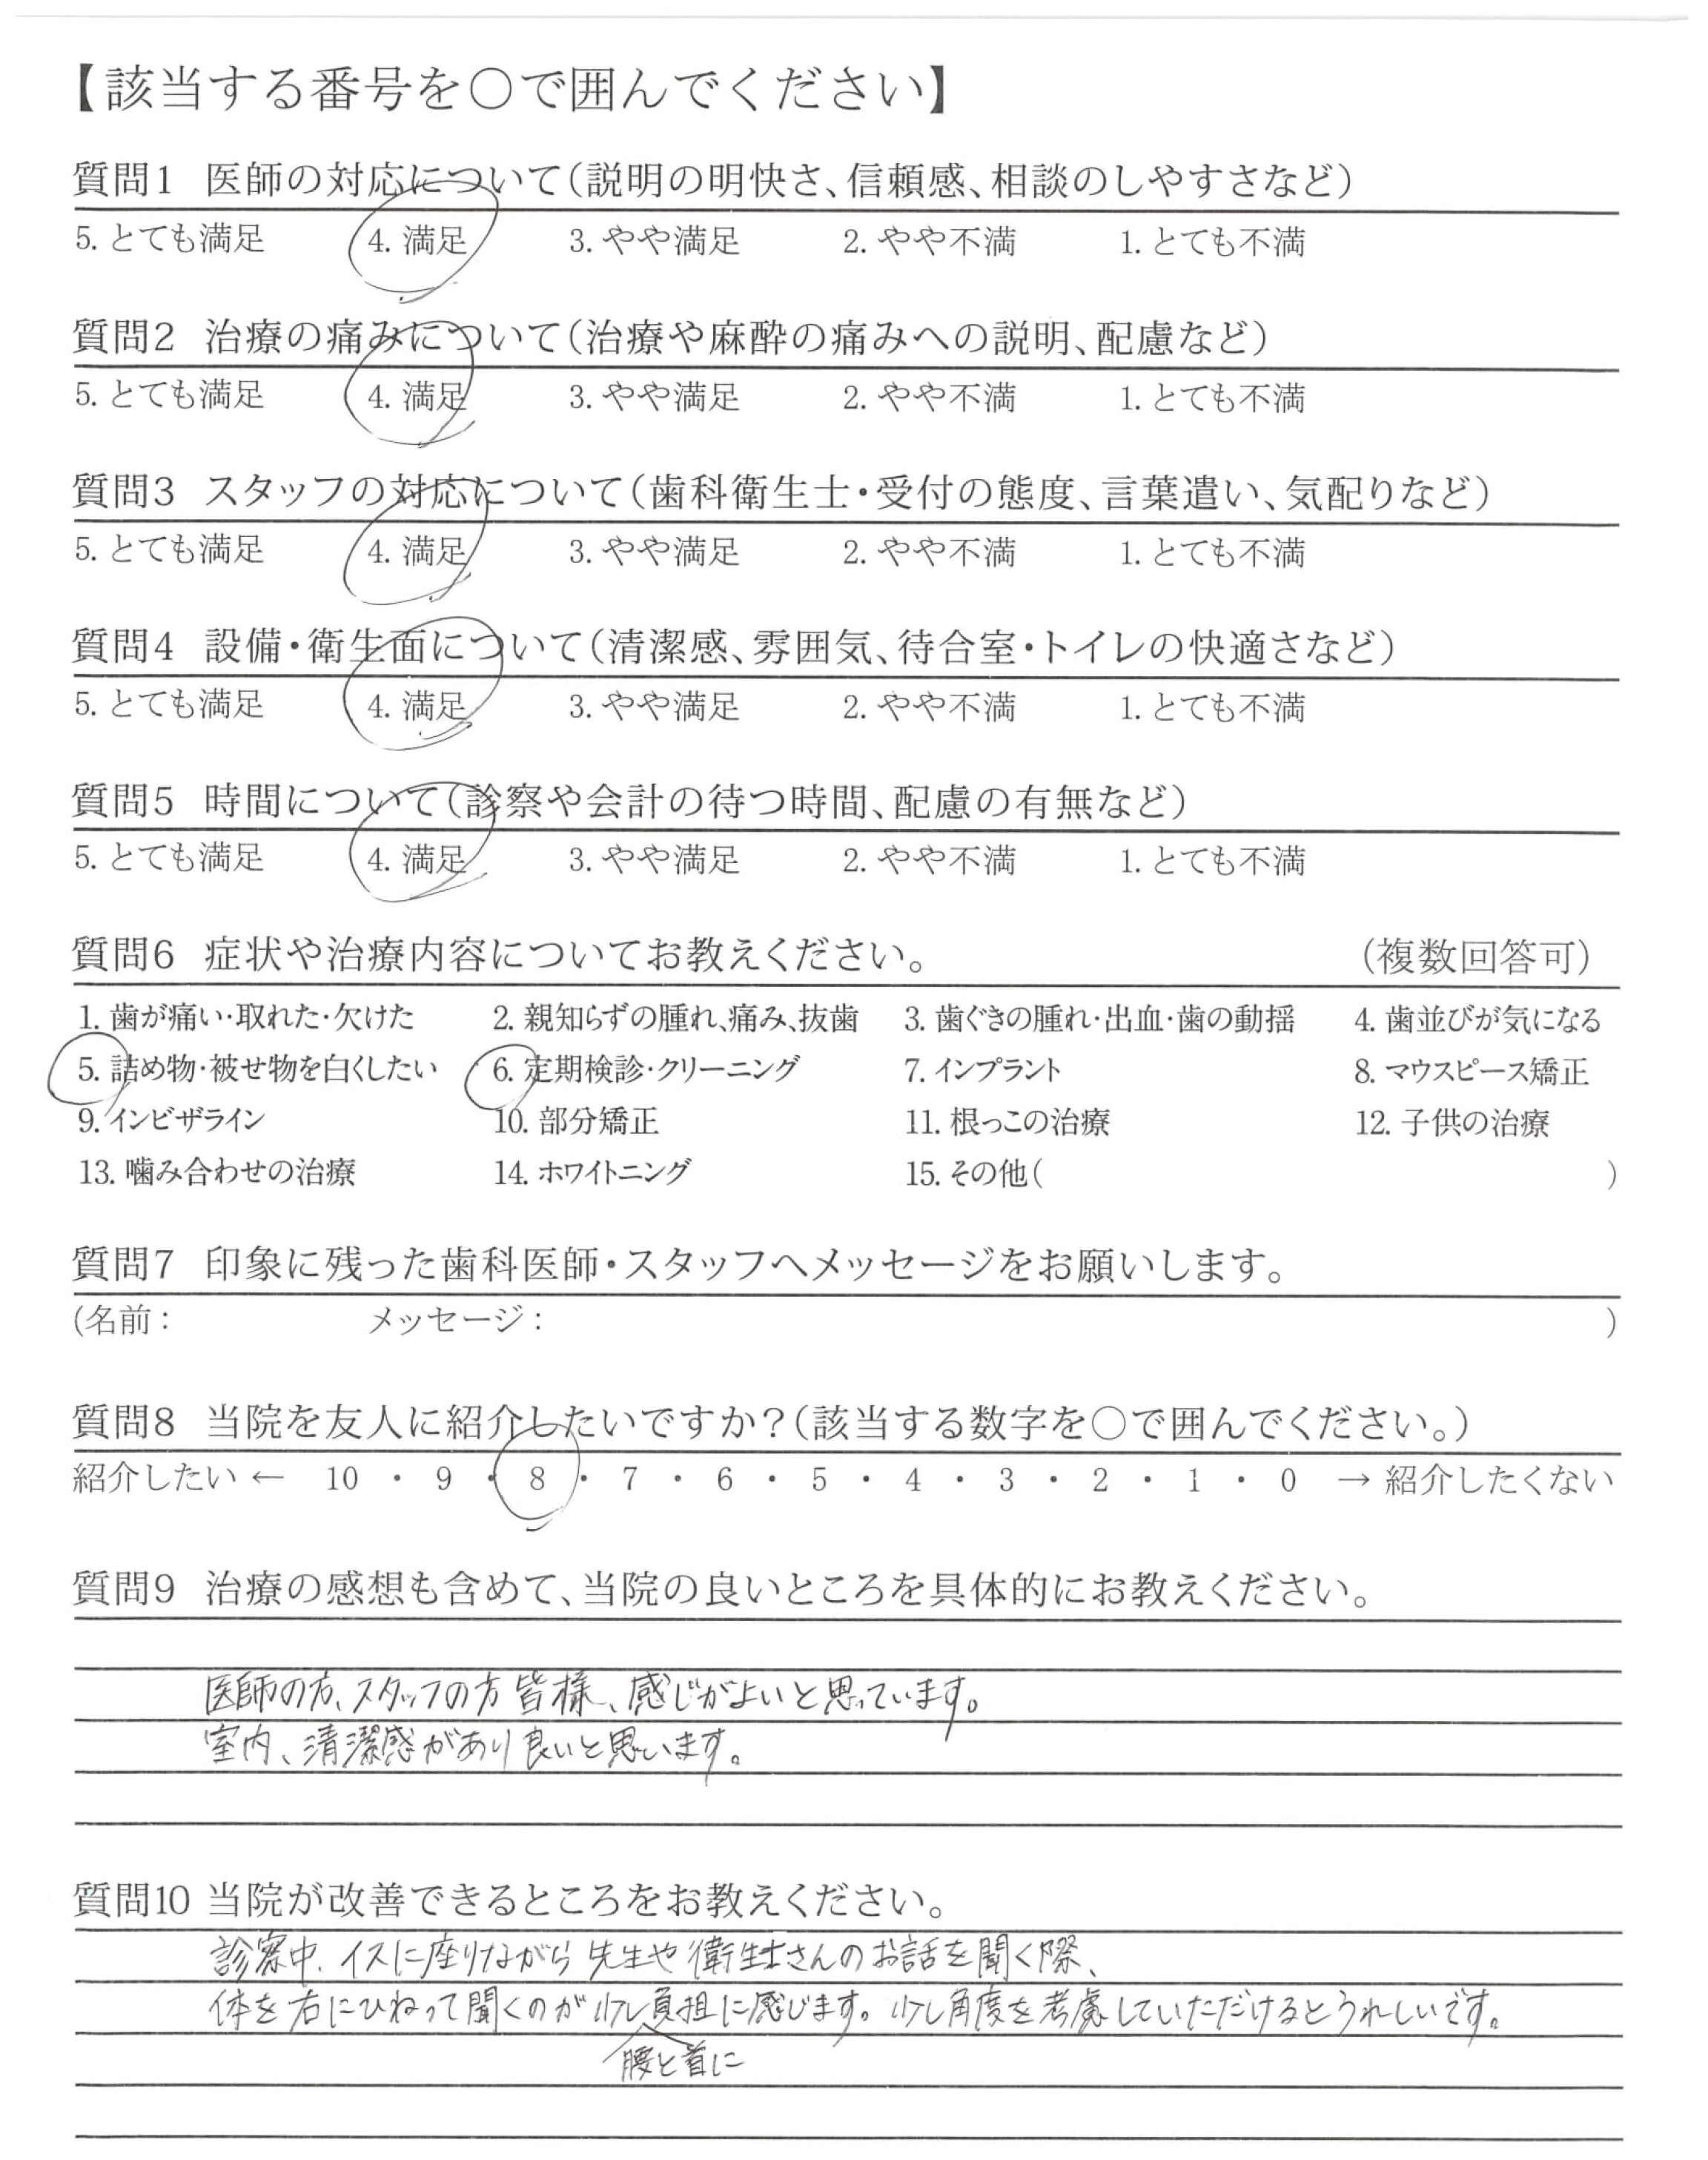 【該当する番号を○で囲んでください】
質問1 医師の対応について(説明の明快さ、信頼感、相談のしやすさなど)
5. とても満足 4. 満足 3. やや満足 2. やや不満 1. とても不満
質問2 治療の痛みについて(治療や麻酔の痛みへの説明、配慮など)
5. とても満足 4. 満足 3. やや満足 2. やや不満 1. とても不満
質問3 スタッフの対応について(歯科衛生士・受付の態度、言葉遣い、気配りなど)
5. とても満足 4. 満足 3. やや満足 2. やや不満 1. とても不満
質問4 設備・衛生面について(清潔感、雰囲気、待合室・トイレの快適さなど)
5. とても満足 4. 満足 3. やや満足 2. やや不満 1. とても不満
質問5 時間について(診察や会計の待つ時間、配慮の有無など)
5. とても満足 4. 満足 3. やや満足 2. やや不満 1. とても不満
質問6 症状や治療内容についてお教えください。 (複数回答可)
1. 歯が痛い・取れた・欠けた 2. 親知らずの腫れ、痛み、抜歯 3. 歯ぐきの腫れ・出血・歯の動揺 4. 歯並びが気になる
5. 詰め物・被せ物を白くしたい 6. 定期検診・クリーニング 7. インプラント 8. マウスピース矯正
9. インビザライン 10. 部分矯正 11. 根っこの治療 12. 子供の治療
13. 噛み合わせの治療 14. ホワイトニング 15. その他( )
質問7 印象に残った歯科医師・スタッフへメッセージをお願いします。
(名前: メッセージ: )
質問8 当院を友人に紹介したいですか?(該当する数字を○で囲んでください。)
紹介したい ← 10 ・ 9 ・ 8 ・ 7 ・ 6 ・ 5 ・ 4 ・ 3 ・ 2 ・ 1 ・ 0 → 紹介したくない
質問9 治療の感想も含めて、当院の良いところを具体的にお教えください。
医師の方、スタッフの方皆様、感じがよいと思っています。
室内、清潔感があり良いと思います。
質問10 当院が改善できるところをお教えください。
診察中、イスに座りながら先生や衛生士さんのお話を聞く際、
体を右にひねって聞くのが少し負担に感じます。少し角度を考慮していただけるとうれしいです。
腰と首に